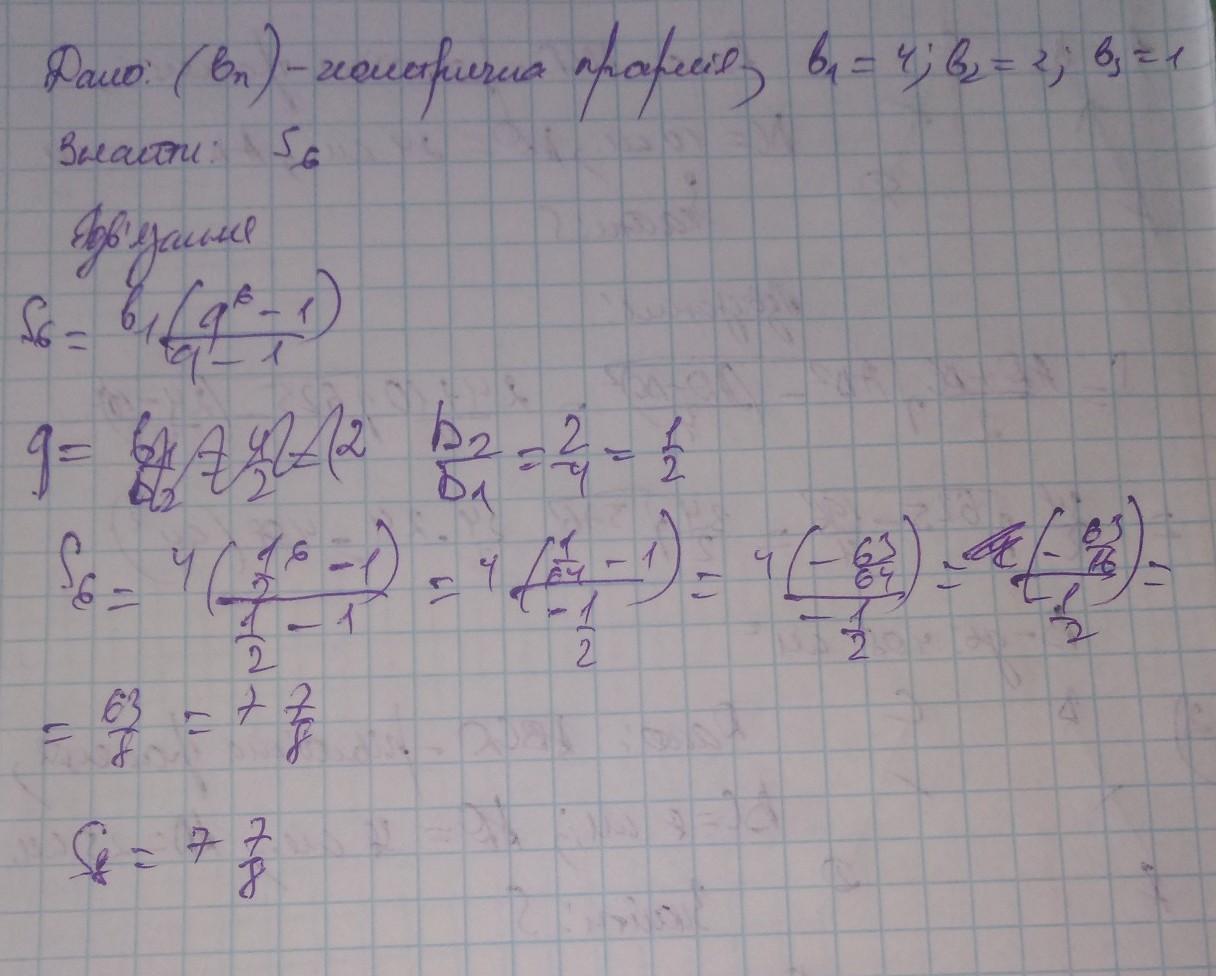 Дано: (bn) - геометрична прогресія; b1 = 4; b2 = 2; b3 = 1
Знайти: S6
Розв'язання
S6 = b1(q^6 - 1)/(q - 1)
q = b2/b1 = 2/4 = 1/2
S6 = 4(1/2^6 - 1)/(1/2 - 1) = 4(1/64 - 1)/(-1/2) = 4(-63/64)/(-1/2) = (-63/16)/(-1/2) =
= 63/8 = 7 7/8
S6 = 7 7/8